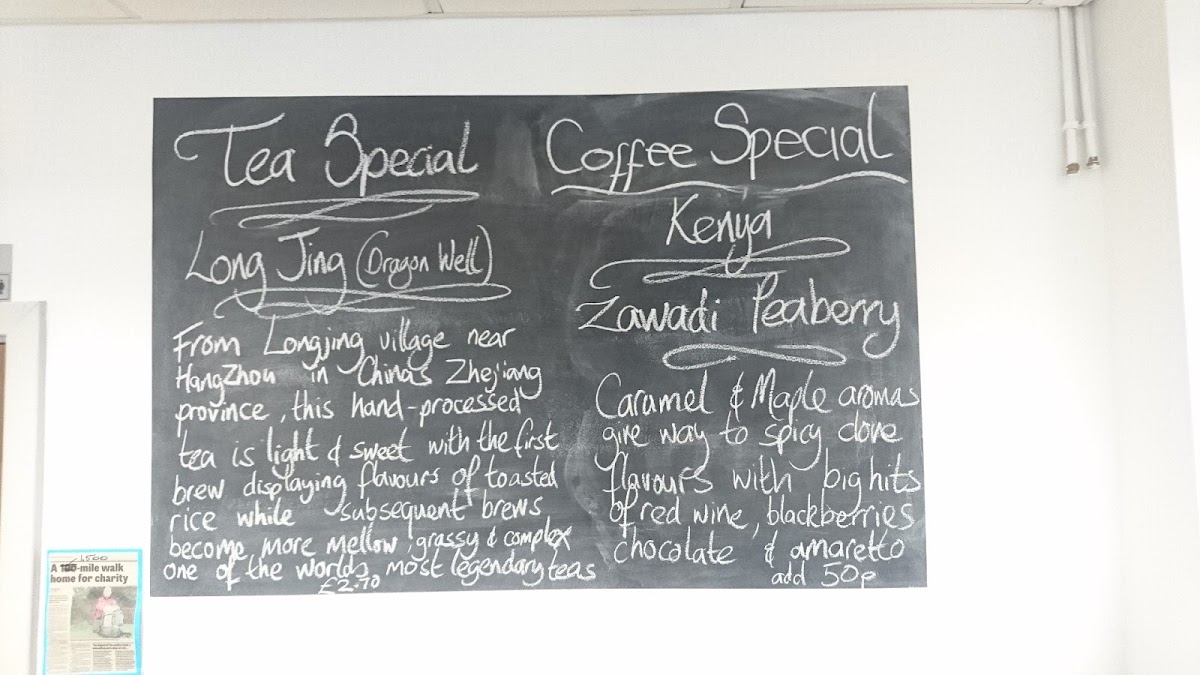 Tea Special
Long Jing (Dragon Well)
From Longjing village near
HangZhou in China's Zhejiang
province, this hand-processed
tea is light & sweet with the first
brew displaying flavours of toasted
rice while subsequent brews
become more mellow, grassy & complex
one of the worlds most legendary teas
£2.70
Coffee Special
Kenya
Zawadi Peaberry
Caramel & Maple aromas
give way to spicy clove
flavours with big hits
of red wine, blackberries
chocolate & amaretto
add 50p
1,500
A 100-mile walk
home for charity